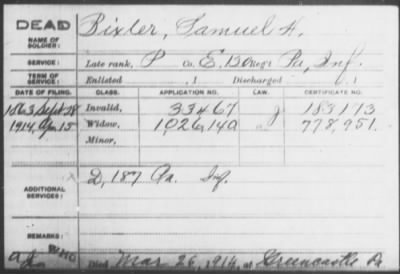 DEAD
NAME OF SOLDIER: Bixler, Samuel H.
SERVICE: Late rank, P Co. E, 130 Reg't Pa, Inf.
TERM OF SERVICE: Enlisted , 1 Discharged , 1
DATE OF FILING. CLASS. APPLICATION NO. LAW. CERTIFICATE NO.
1863 Sept 28 Invalid, 33467 183173
1914 Apr 15 Widow, 1026,140 778,951.
Minor,
ADDITIONAL SERVICES: D, 187 Pa. Inf.
REMARKS:
Died Mar 26, 1914, at Greencastle Pa